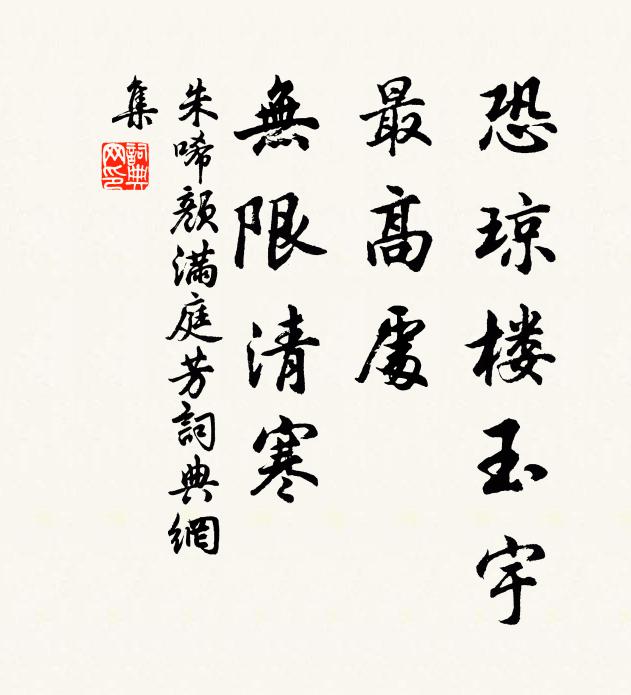 恐琼楼玉宇
最高處
無限清寒
朱唏颜满庭芳詞典網
集
詞典
网印